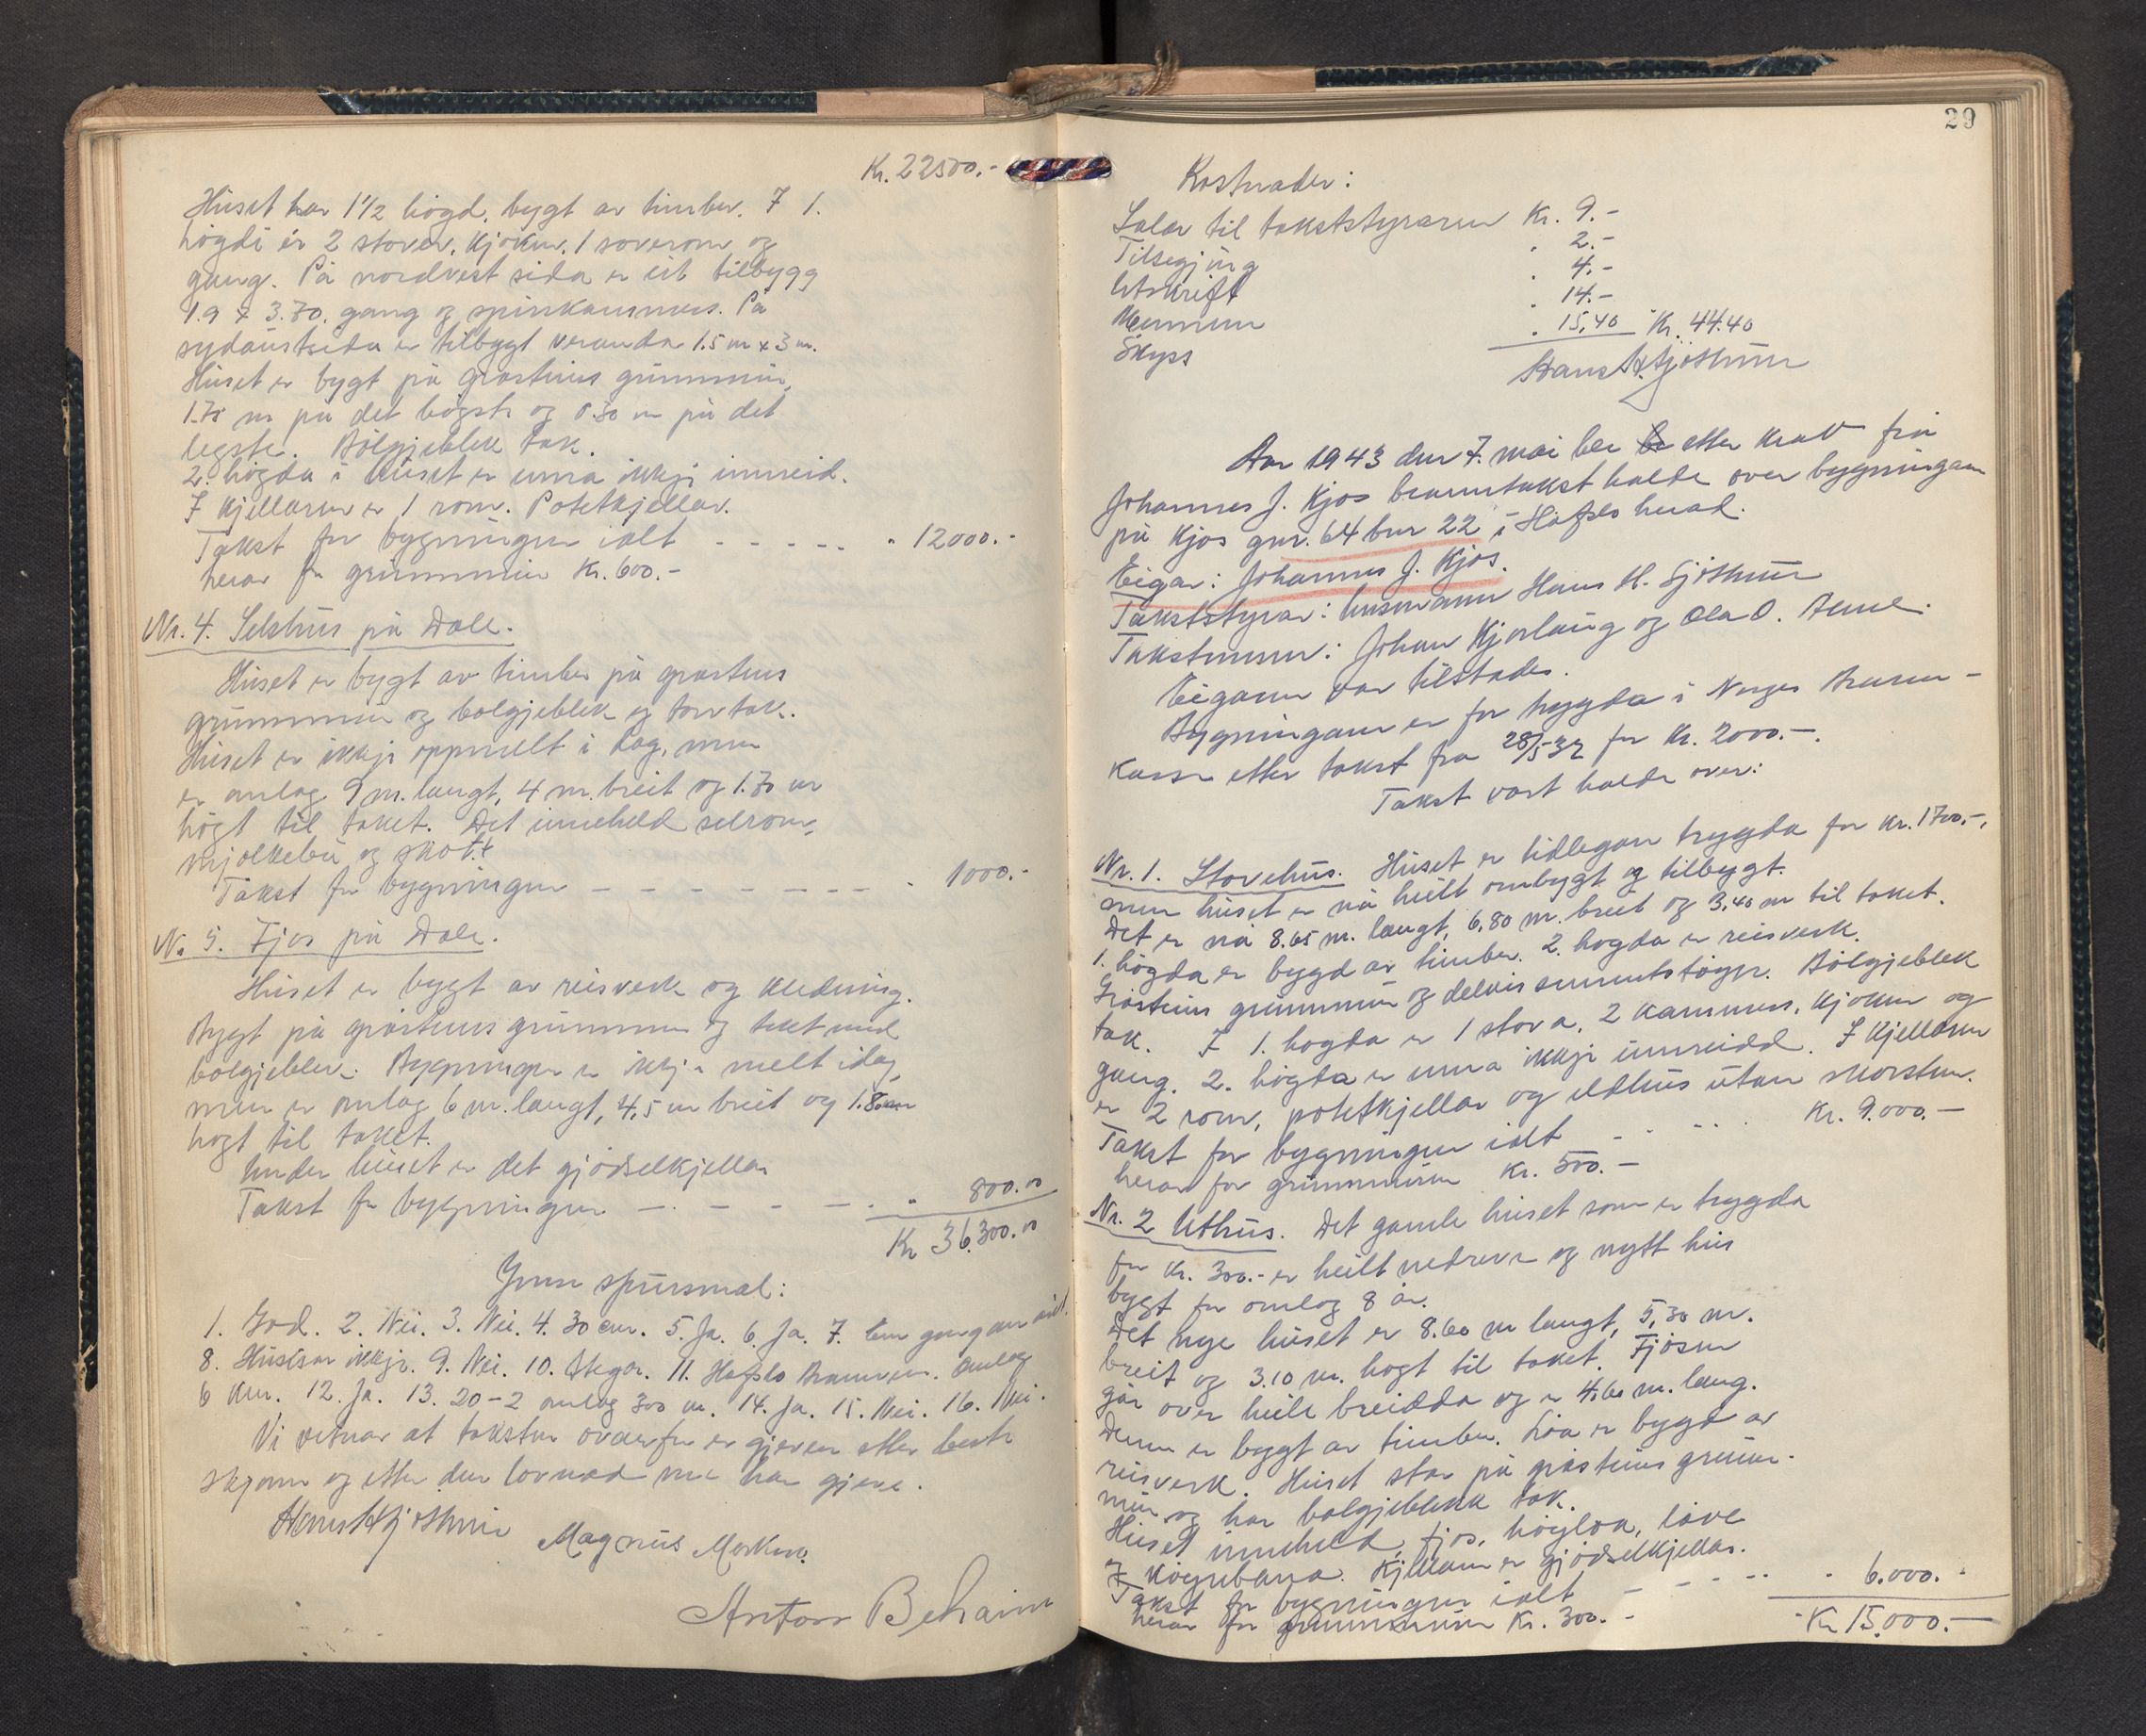 Kr. 22500.-
Huset har 1 1/2 högd, bygt av timber. I 1.
högdi er 2 stover, kjöken, 1 soverom og
gang. På nordvest sida er eit tilbygg
1.9 x 3.70. gang og spiskammers. På
sydaustsida er tilbygt veranda 1.5 m x 3 m.
Huset er bygt på gråsteins grunnmur,
1.75 m på det högste og 0.50 m på det
legste. Bölgjeblek tak.
2. högda i huset er enna ikkje innreid.
I kjellaren er 1 rom. Potetkjellar.
Takst for bygningen ialt - - - - - " 12000.-
herav for grunnmuren Kr. 600.-
Nr. 4. Selshus på Dale.
Huset er bygt av timber på gråsteins
grunnmur og bölgjeblek og torvtak.
Huset er ikkje oppmelt i dag, men
er omlag 9 m. langt, 4 m. breit og 1.70 m
högt til taket. Det inneheld selrom,
mjölkebu og skott.
Takst for bygningen - - - - - - - - " 1000.-
Nr. 5. Fjos på Dale.
Huset er bygt av reisverk og kledning.
Bygt på gråsteins grunnmur og tekt med
bölgjeblek. Bygningen er ikkje melt idag,
men er omlag 6 m. langt, 4,5 m breit og 1.80 m
högt til taket.
Under huset er det gjödselkjellar
Takst for bygningen - - - - - " 800.00
Kr 36.300.00
Ymse spursmål:
1. God. 2. Nei. 3. Nei. 4. 30 cm. 5. Ja. 6. Ja. 7. Ein gong om året.
8. Husisar ikkje. 9. Nei. 10. Stegar. 11. Hafslo Brannven. omlag
6 km. 12. Ja. 13. 20-2 omlag 300 m. 14. Ja. 15. Nei. 16. Nei.
Vi vitnar at taksten ovanfor er gjeven etter beste
skjönn og etter den lovnad me har gjeve.
Hans H. Sjöthun Magnus Merken.
Anton Beheim
29
Kostnader:
Salær til takststyraren Kr. 9.-
Tilsegjing " 2.-
Utskrift " 4.-
Mennene " 14.-
Skyss " 15,40 Kr. 44.40
Hans H. Sjöthun
Aar 1943 den 7. mai ble etter krav frå
Johannes J. Kjos branntakst halde over bygningane
på Kjos gnr. 64 bnr 22 i Hafslo herad.
Eigar: Johannes J. Kjos.
Takststyrar: lensmann Hans H. Sjöthun
Takstmenn: Johan Kjorlaug og Ola O. Beme.
Eigaren var tilstades.
Bygningane er for trygda i Norges Brann-
kasse etter takst fra 28/5-32 for Kr. 2000.-.
Takst vart halde over:
Nr. 1. Stovehus. Huset er tidlegare trygda for Kr. 1700.-,
men huset er nå heilt ombygt og tilbygt.
Det er nå 8.65 m. langt, 6,80 m. breit og 3,40 m til taket.
1. högda er bygd av timber. 2. högda er reisverk.
Gråsteins grunnmur og delvis sementstöype. Bölgjeblek
tak. I 1. högda er 1 stova, 2 kammers, kjöken og
gang. 2. högda er enna ikkje innreidd. I kjellaren
er 2 rom, potetkjellar og eldhus utan skorstein.
Takst for bygningen ialt - - - - Kr. 9.000.-
herav for grunnmuren Kr. 500.-
Nr. 2 Uthus. Det gamle huset som er trygda
for Kr. 300.- er heilt nedreve og nytt hus
bygt for omlag 8 år.
Det nye huset er 8.60 m langt, 5,30 m.
breit og 3.10 m. högt til taket. Fjösen
går over heile breidda og er 4.60 m. lang.
Denne er bygt av timber. Löa er bygd av
reisverk. Huset står på gråsteins grunn-
mur og har bölgjeblekk tak.
Huset inneheld fjos, höyloa, låve
og köyrebana. Kjellaren er gjödselkjellar.
Takst for bygningen ialt - - - - - " 6.000.-
herav for grunnmuren Kr. 300.-
Kr 15.000.-